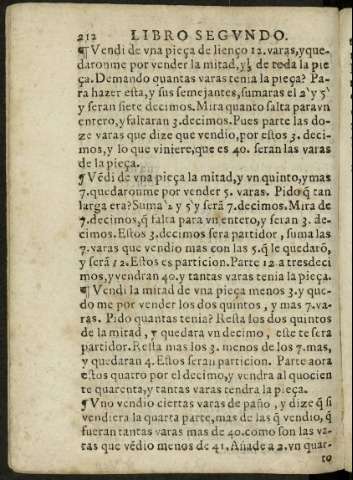 212 LIBRO SEGVNDO.
¶ Vendi de vna pieça de lienço 12. varas, y que-
daronme por vender la mitad, y ⅕ de toda la pie
ça. Demando quantas varas tenia la pieça? Pa-
ra hazer esta, y sus semejantes, sumaras el ½ y ⅕
y seran siete decimos. Mira quanto falta para vn
entero, y faltaran 3. decimos. Pues parte las do-
ze varas que dize que vendio, por estos 3. deci-
mos, y lo que viniere, que es 40. seran las varas
de la pieça.
¶ Vẽdi de vna pieça la mitad, y vn quinto, y mas
7. quedaronme por vender 5. varas. Pido q̃ tan
larga era? Suma ½ y ⅕ y serã 7. decimos. Mira de
7. decimos, q̃ falta para vn entero, y seran 3. de-
cimos. Estos 3. decimos sera partidor, suma las
7. varas que vendio mas con las 5. q̃ le quedarõ,
y serã 12. Estos es particion. Parte 12. a tres deci
mos, y vendran 40. y tantas varas tenia la pieça.
¶ Vendi la mitad de vna pieça menos 3. y que-
do me por vender los dos quintos, y mas 7. va-
ras. Pido quantas tenia? Resta los dos quintos
de la mitad, y quedara vn decimo, este te sera
partidor. Resta mas los 3. menos de los 7. mas,
y quedaran 4. Estos seran particion. Parte aora
estos quatro por el decimo, y vendra al quocien
te quarenta, y tantas varas tendra la pieça.
¶ Vno vendio ciertas varas de paño, y dize q̃ si
vendiera la quarta parte, mas de las q̃ vendio, q̃
fueran tantas varas mas de 40. como son las va-
ras que vẽdio menos de 41. Añade a 2. vn quar-
to